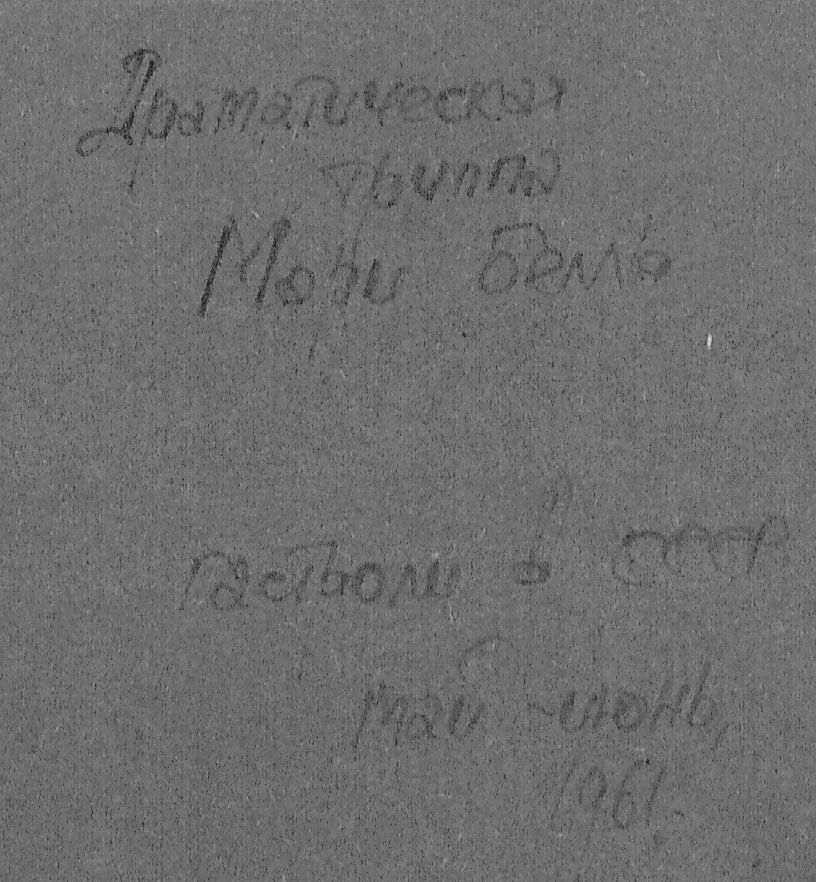 Драматическая
труппа
Мари Бэлл
гастроли в СССР
май - июнь,
1961.